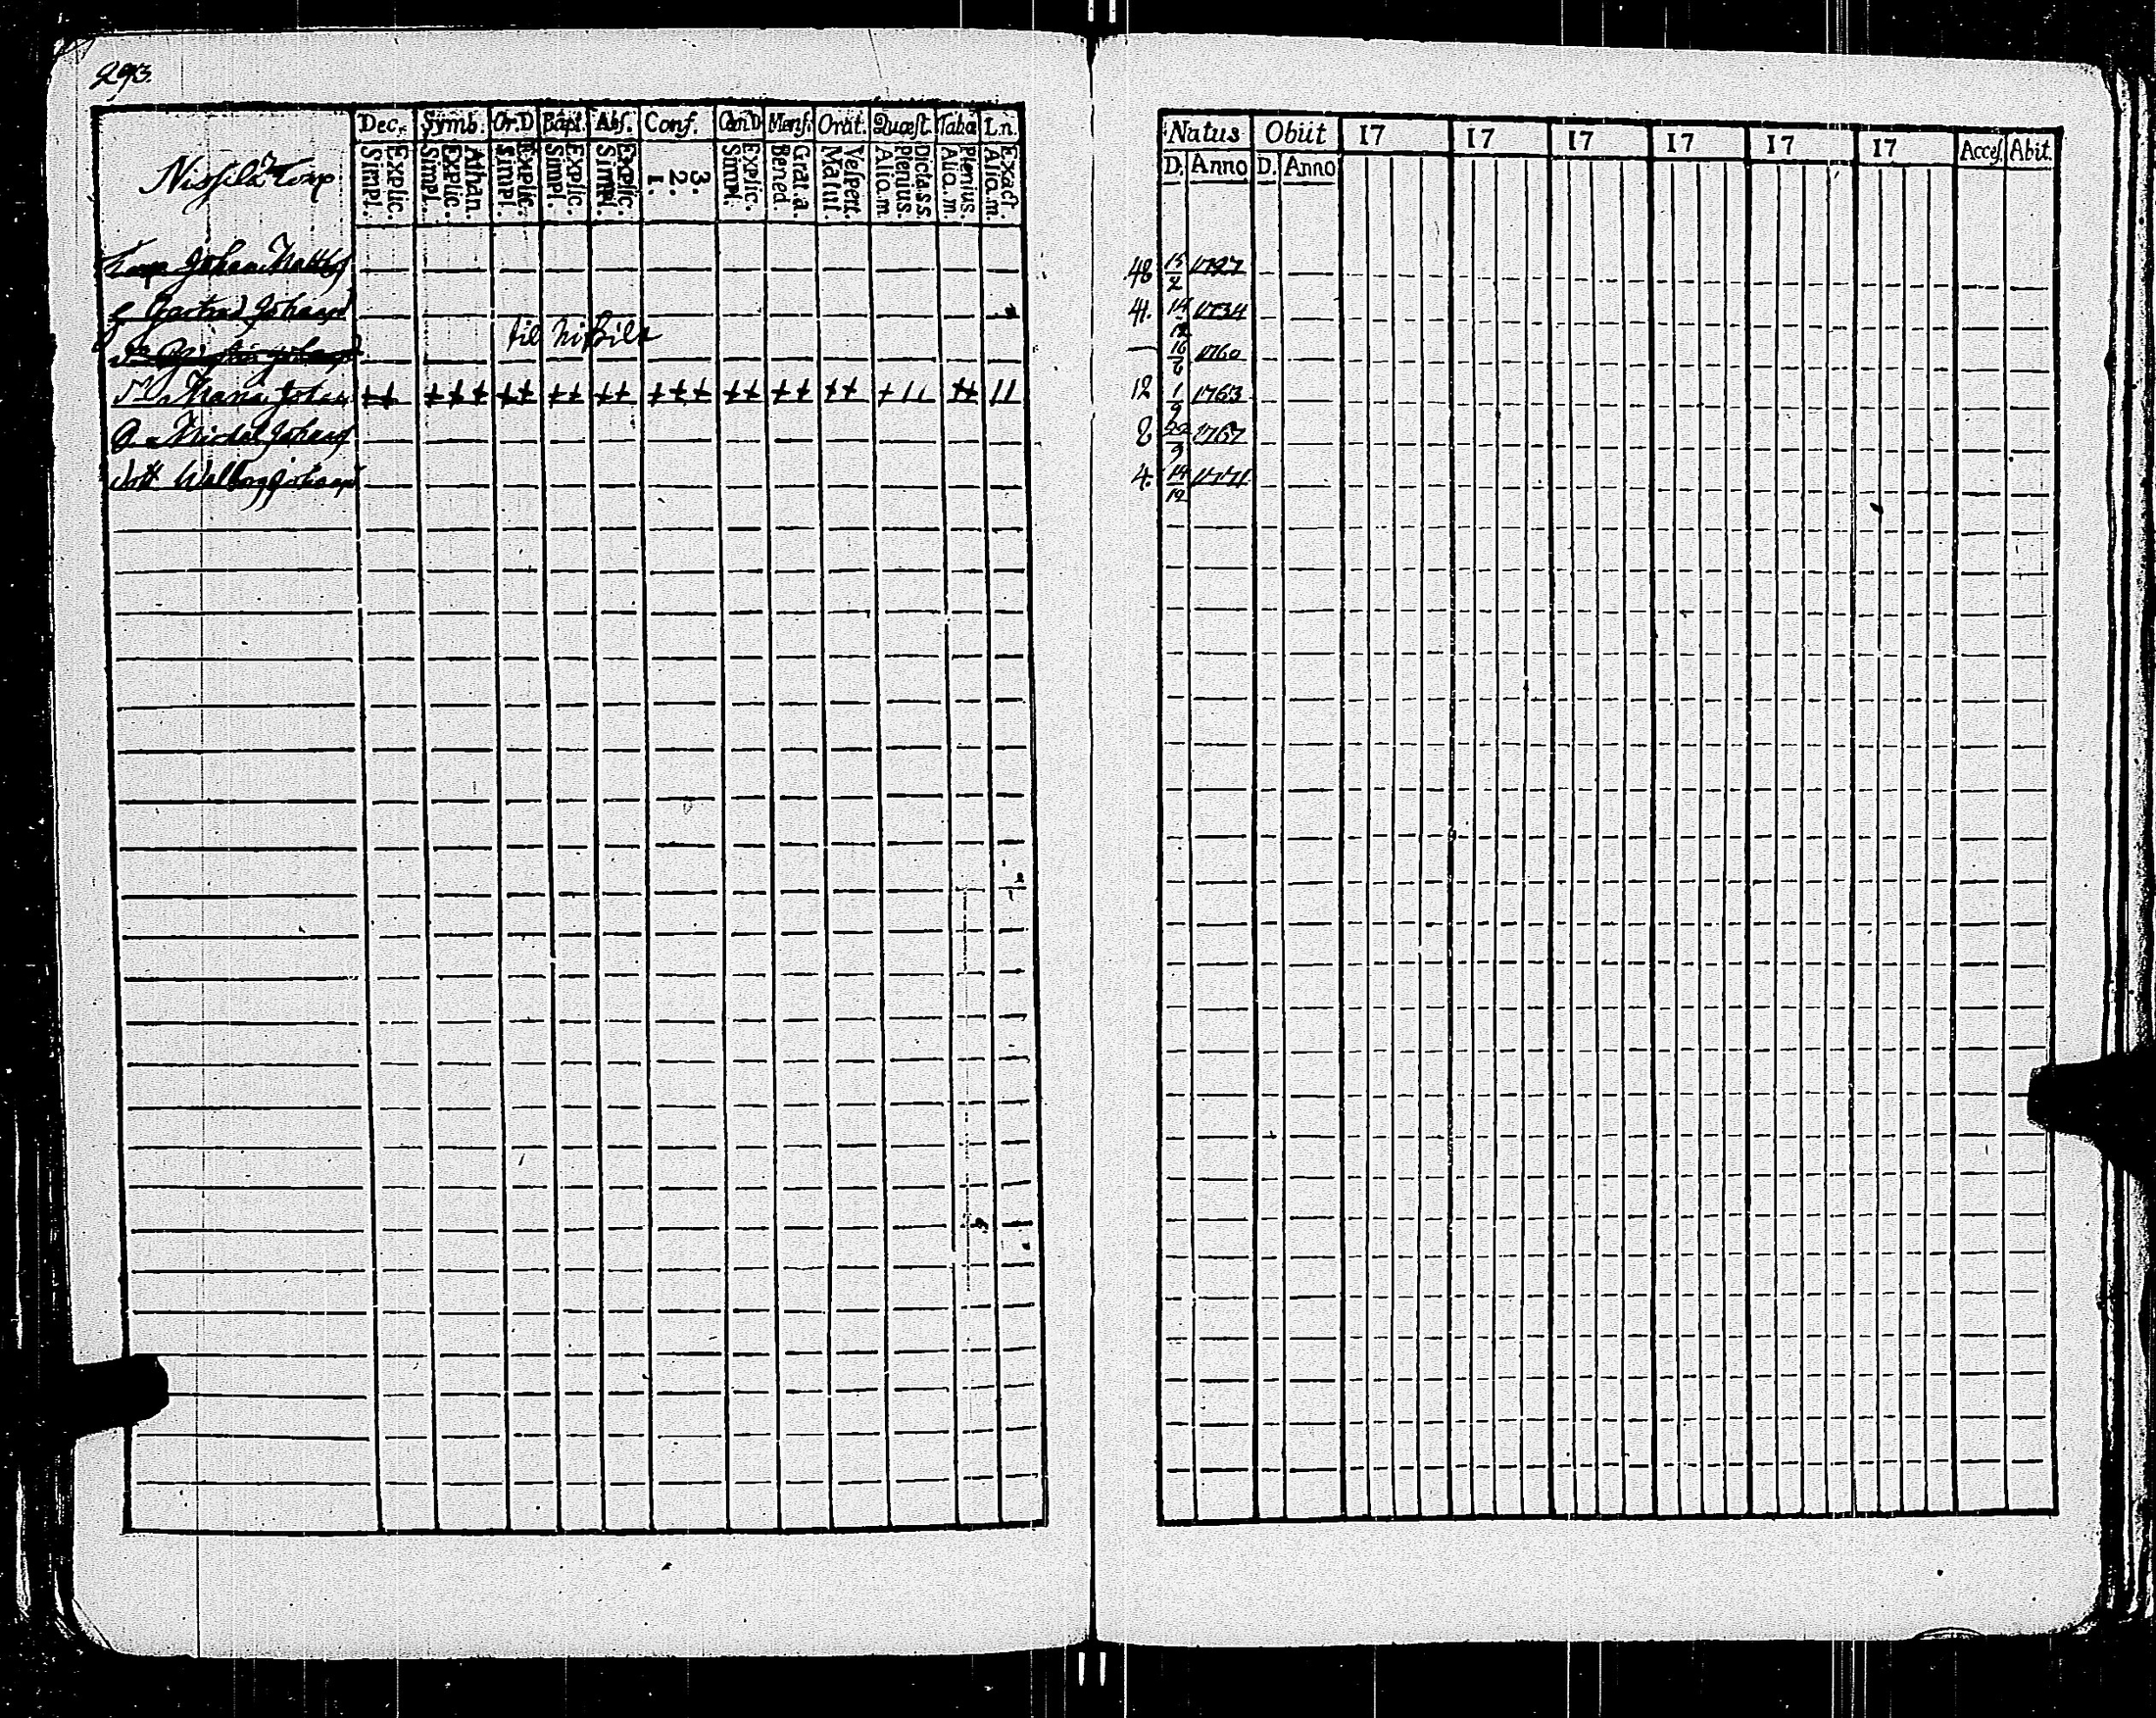 293.
Nissilä Torp
Dec. Symb. Or.D Bapt. Abs. Conf. Cœn.D Mens. Orat. Quæst. Tab.œ Ln.
Explic. Simpl. Athan. Explic. Simpl. Explic. Simpl. Explic. Simpl. Explic. Simpl. 3. 2. 1. Explic. Simpl. Grat.a. Bened. Vespert. Matut. Dicta.s.s. Plenius. Alio.m. Plenius. Alio.m. Exact. Alio.m.
Torp Johan Matts
Johansd
til Nissilä
Maria Johansd ++ +++ ++ ++ ++ +++ ++ ++ ++ +11 ++ 11
Michel Johans
dott Walborg Johansd
Natus Obiit 17 17 17 17 17 17 Acces. Abit.
D. Anno D. Anno
48 15/2 1727
41. 14/12 1734
16/6 1760
12 1/9 1763
8 1767
4. 14/12 1771